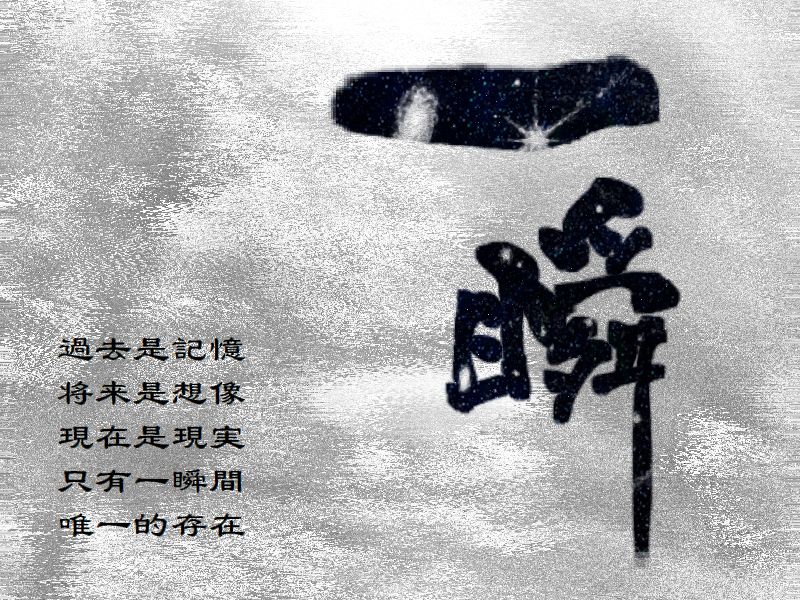 一瞬
過去是記憶
将来是想像
現在是現実
只有一瞬間
唯一的存在